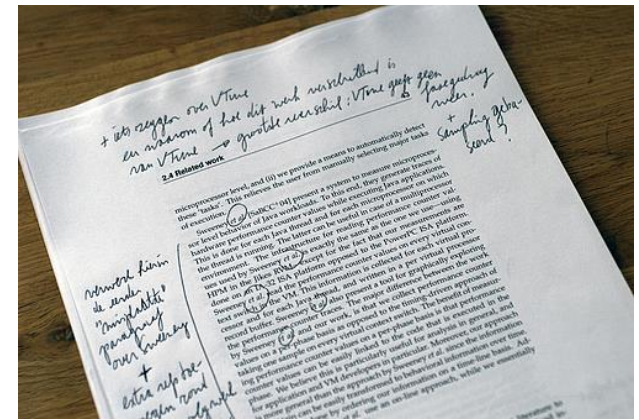 + iets zeggen over VTune
en waarom of hoe dit werk verschillend is
van VTune → grootste verschil: VTune geeft geen
fasegedrag
weer.
+
sampling geba-
seerd?
2.4 Related work
microprocessor level, and (ii) we provide a means to automatically detect
these "tasks". This relieves the user from manually selecting major tasks
of execution.
Sweeney et al. [SBCC+04] present a system to measure microproces-
sor level behavior of Java workloads. To this end, they generate traces of
hardware performance counter values while executing Java applications.
This is done for each Java thread and for each microprocessor on which
the thread is running. The latter can be useful in case of a multiprocessor
environment. The infrastructure for reading performance counter val-
ues used by Sweeney et al. is exactly the same as the one we use—using
HPM in the Jikes RVM—except for the fact that our measurements are
done on an IA-32 ISA platform opposed to the PowerPC ISA platform.
Sweeney et al. read the performance counter values on every virtual con-
text switch in the VM. This information is collected for each virtual pro-
cessor and for each Java thread, and written in a per virtual processor
record buffer. Sweeney et al. also present a tool for graphically exploring
performance counter traces. The major difference between the work
by Sweeney et al. and our work, is that we collect performance counter
values on a per-phase basis as opposed to the timing-driven approach of
taking one sample on every virtual context switch. The benefit of measur-
ing performance counter values on a per-phase basis is that performance
counter values can be easily linked to the code that is executed in the
phase. We believe this is particularly useful for analysis in general, and
for application and VM developers in particular. Moreover, our approach
is more general than the approach by Sweeney et al. since the information
we obtain can be easily transformed to behavioral information over time
by ordering our information on a time-line basis. Ad-
et al. use an on-line approach, while we essentially
verwerk hierin
de eerder
paragraaf
over Sweeney
+
extra rep